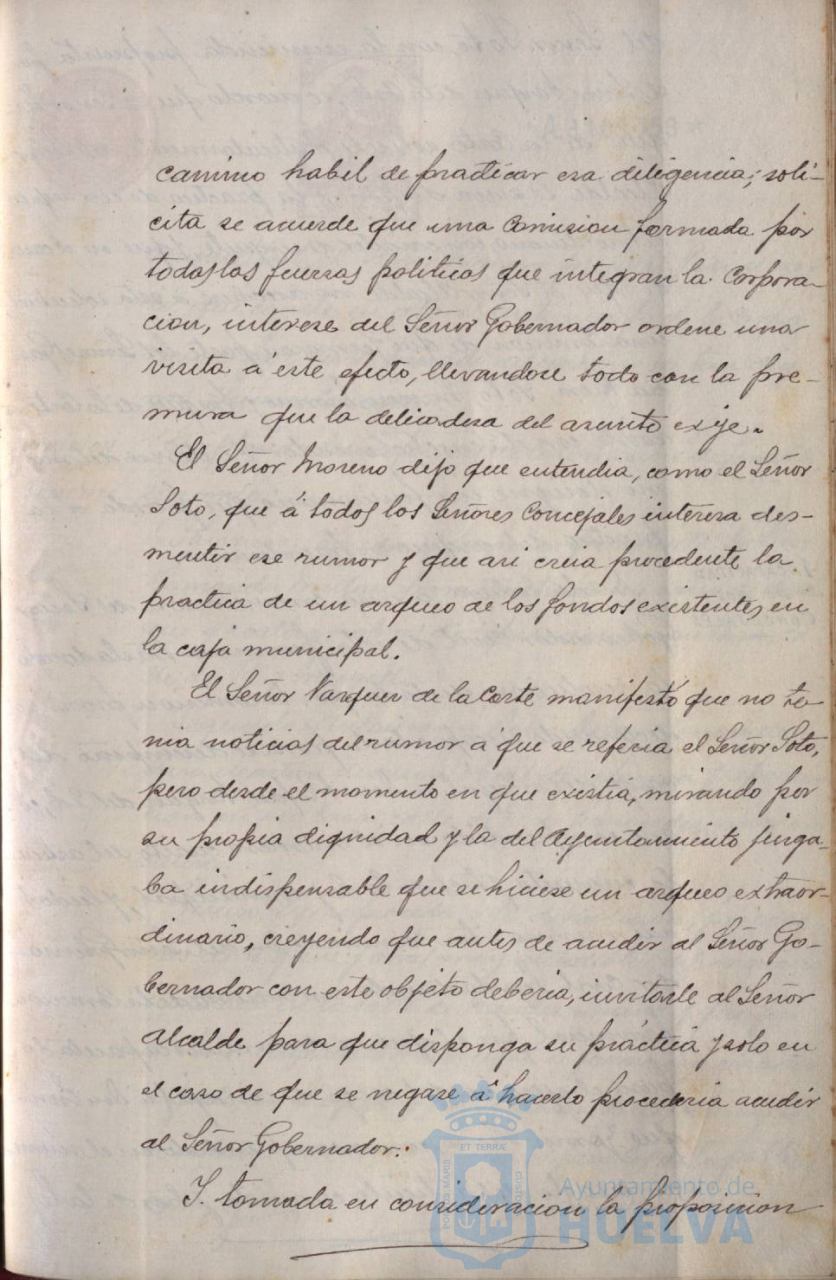 camino habil de practicar esa diligencia; soli-
cita se acuerde que una Comision formada por
todas las fuerzas politicas que integran la Corpora-
cion, interese del Señor Gobernador ordene una
visita á este efecto, llevandose todo con la pre-
mura que la delicadesa del asunto exije.
El Señor Moreno dijo que entendia, como el Señor
Soto, que á todos los Señores Concejales interesa des-
mentir ese rumor y que asi creia procedente la
practica de un arqueo de los fondos existentes en
la caja municipal.
El Señor Vazquez de la Corte manifestó que no te-
nia noticias del rumor á que se referia el Señor Soto,
pero desde el momento en que existia, mirando por
su propia dignidad y la del Ayuntamiento juzga-
ba indispensable que se hiciese un arqueo extraor-
dinario, creyendo que antes de acudir al Señor Go-
bernador con este objeto deberia, invitarle al Señor
Alcalde para que disponga su práctica y solo en
el caso de que se negase á hacerlo procederia acudir
al Señor Gobernador.
Y tomada en consideracion la proposicion
PORTUS MARIS ET TERRÆ CUSTODIA
Ayuntamiento de
HUELVA